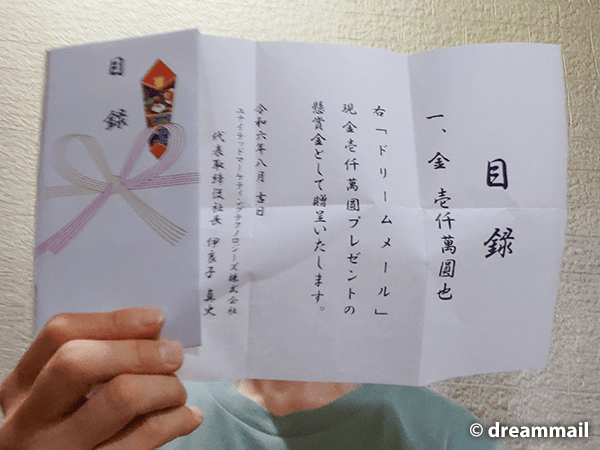 目録
一、金 壱仟萬圓也
右「ドリームメール」
現金壱仟萬圓プレゼントの
懸賞金として贈呈いたします。
令和六年八月 吉日
ユナイテッドマーケティングテクノロジーズ株式会社
代表取締役社長 伊良子 真史
目録
© dreammail